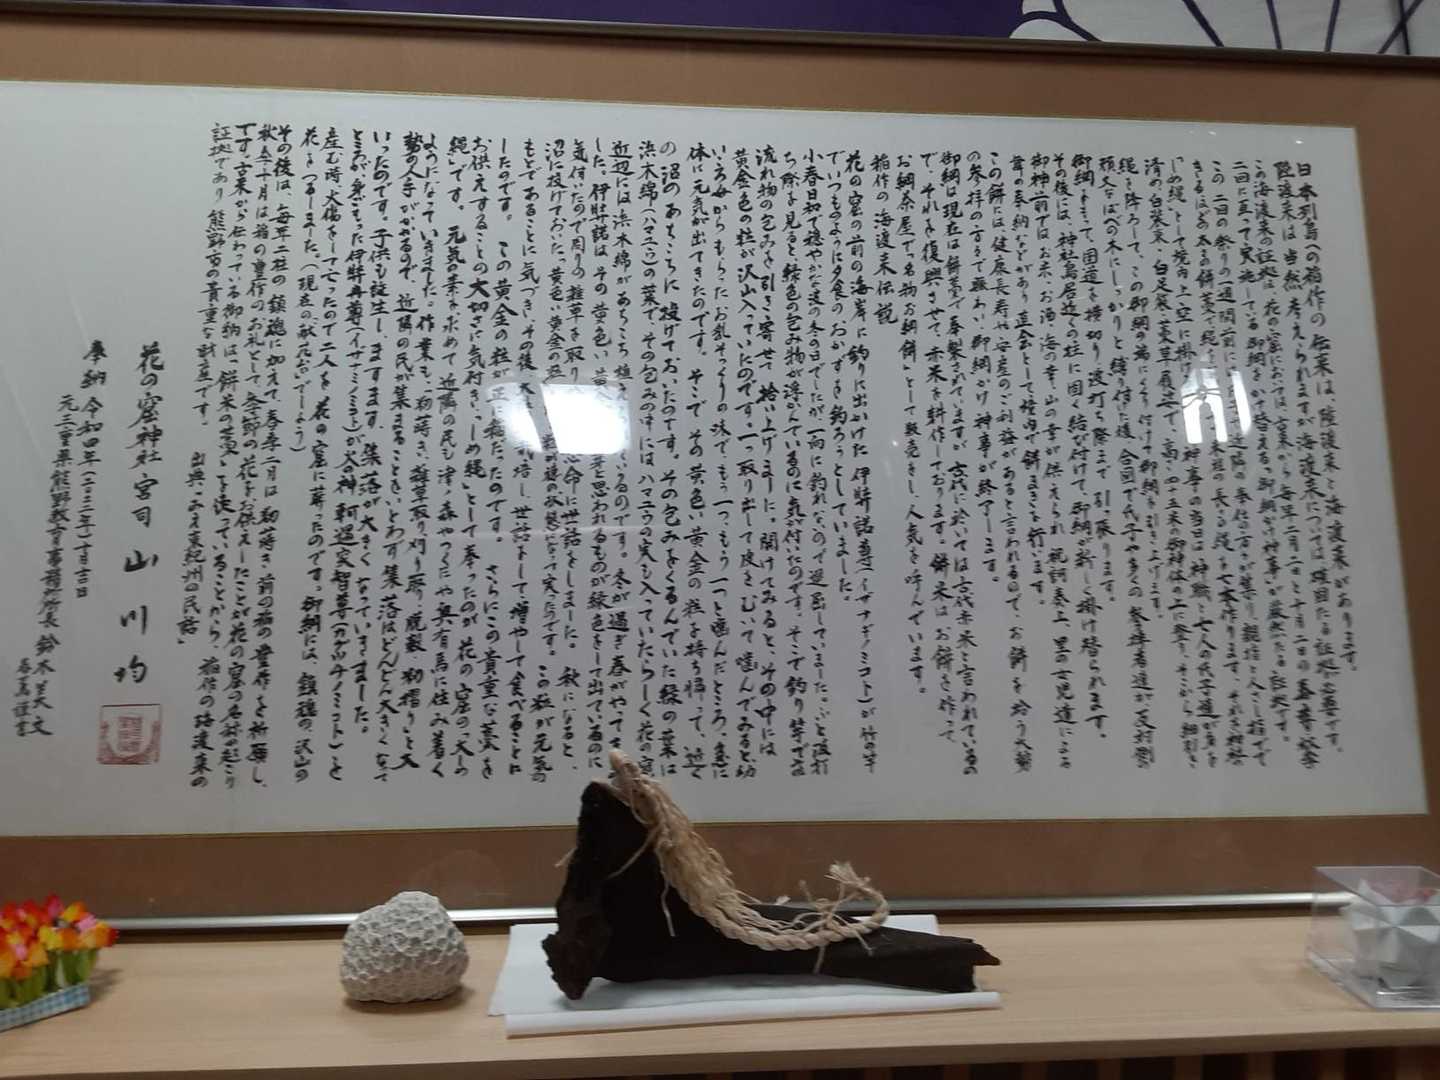 日本列島への稲作の伝来は、陸渡来と海渡来があります。
陸渡来は当然考えられますが海渡来については確固たる証拠が必要です。
この海渡来の証拠は、花の窟においては、古来から毎年二月二日と十月二日の春季、秋季
二回に亘って実施している御綱をかけ替える「御綱かけ神事」が厳然たる証拠です。
この二回の祭りの一週間前には
しめ縄」として境内上空に掛け
清めの白装束、白足袋、藁草履姿で、高さ四十五米の御神体の上に登り、そこから細引き
縄を降ろして、この御綱の端にくくり付けて御綱を引き上げます。
頑丈なばべの木にしっかりと縛り付けた後、今回で氏子や多くの参拝者達が反対側の
御綱をもって、国道を横切り、波打ち際まで引っ張ります。
その後には、神社鳥居近くの柱に固く結び付けて、御綱が新しく掛け替られます。
御神前ではお米、お酒、海の幸、山の幸が供えられ、祝詞奏上、里の女児達による
舞の奉納などがあり、直会として境内で餅まきを行います。
この餅には健康長寿や安産のご利益があると言われるので、お餅を拾う大勢
の参拝の方々で賑わい、御綱かけ神事が終了します。
御綱は現在は餅藁で奉製されていますが、古代に於いては古代赤米と言われているの
で、それを復興させて、赤米を耕作しております。餅米はお餅を作って、
お綱茶屋で「名物お綱餅」として販売をし、人気を呼んでいます。
稲作の海渡来伝説
花の窟の前の海岸に釣りに出かけた伊弉諾尊(イザナギノミコト)が竹の竿
でいつものように夕食のおかずを釣ろうとしていました。
小春日和で穏やかな波の冬の日でしたが一向に釣れないので退屈していました。ふと波打
ち際を見ると緑色の包み物が浮かんでいるのに気が付いたのです。そこで釣り竿で其
流れ物の包みを引き寄せて拾い上げました。開けてみると、その中には
黄金色の粒が沢山入っていたのです。一つ取り出して皮をむいて噛んでみると、幼
いころ母からもらったお乳そっくりの味で、もう一つ、もう一つと噛んだところ、急に
体に元気が出てきたのです。そこで、その黄色い黄金の粒を持ち帰って、近く
の沼のあちこちに投げておいたのです。その包みをくるんでいた緑の葉は
浜木綿(ハマユウ)の葉で、その包みの中にはハマユウの実も入っていたらしく花の窟
近辺には浜木綿があちこち植え
した。伊弉諾はその黄色い黄金
気付いたので周りの雑草を取り
沼に投げておいた、黄色い黄金の粒
もとであることに気づき、その後
したのです。この黄金の粒が正に稲だったのです。さらにこの貴重な藁を
お供えすることの大切さに気付き「しめ縄」として奉ったのが、花の窟の「大しめ
縄」です。元気の素を求めて近隣の民も津ノ森やつくにや奥有馬に住み着く
ようになっていきました。作業も、籾蒔き、雑草取り、刈り取り、脱穀、籾摺りと大
勢の人手がかかるので、近隣の民が集まることをいとわず集落はどんどん大きくなって
いったのです。子供も誕生し、ますます、集落が大きくなっていきました。
ところが、身ごもった伊弉冉尊(イザナミノミコト)が火の神、軻遇突智尊(カグツチノミコト)を
産む時、大傷をして亡ったので二人を、花の窟に葬ったのです。御綱には、鎮魂の沢山の
花をつるしました。(現在の献花台でしょう)
その後は、毎年二柱の鎮魂に加えて、春季二月は籾蒔き前の稲の豊作を祈願し、
秋季十月は稲の豊作のお礼として冬節の花をお供えしたことが花の窟の名称の起こり
です。古来から伝わっている御綱は、餅米の藁を使っていることから、稲作の海渡来の
証拠であり熊野市の貴重な財産です。
出典「みえ東紀州の民話」
元三重県熊野教育事務所長 鈴木
奉納 令和四年(二〇二二年)十月吉日
花の窟神社 宮司 山川均